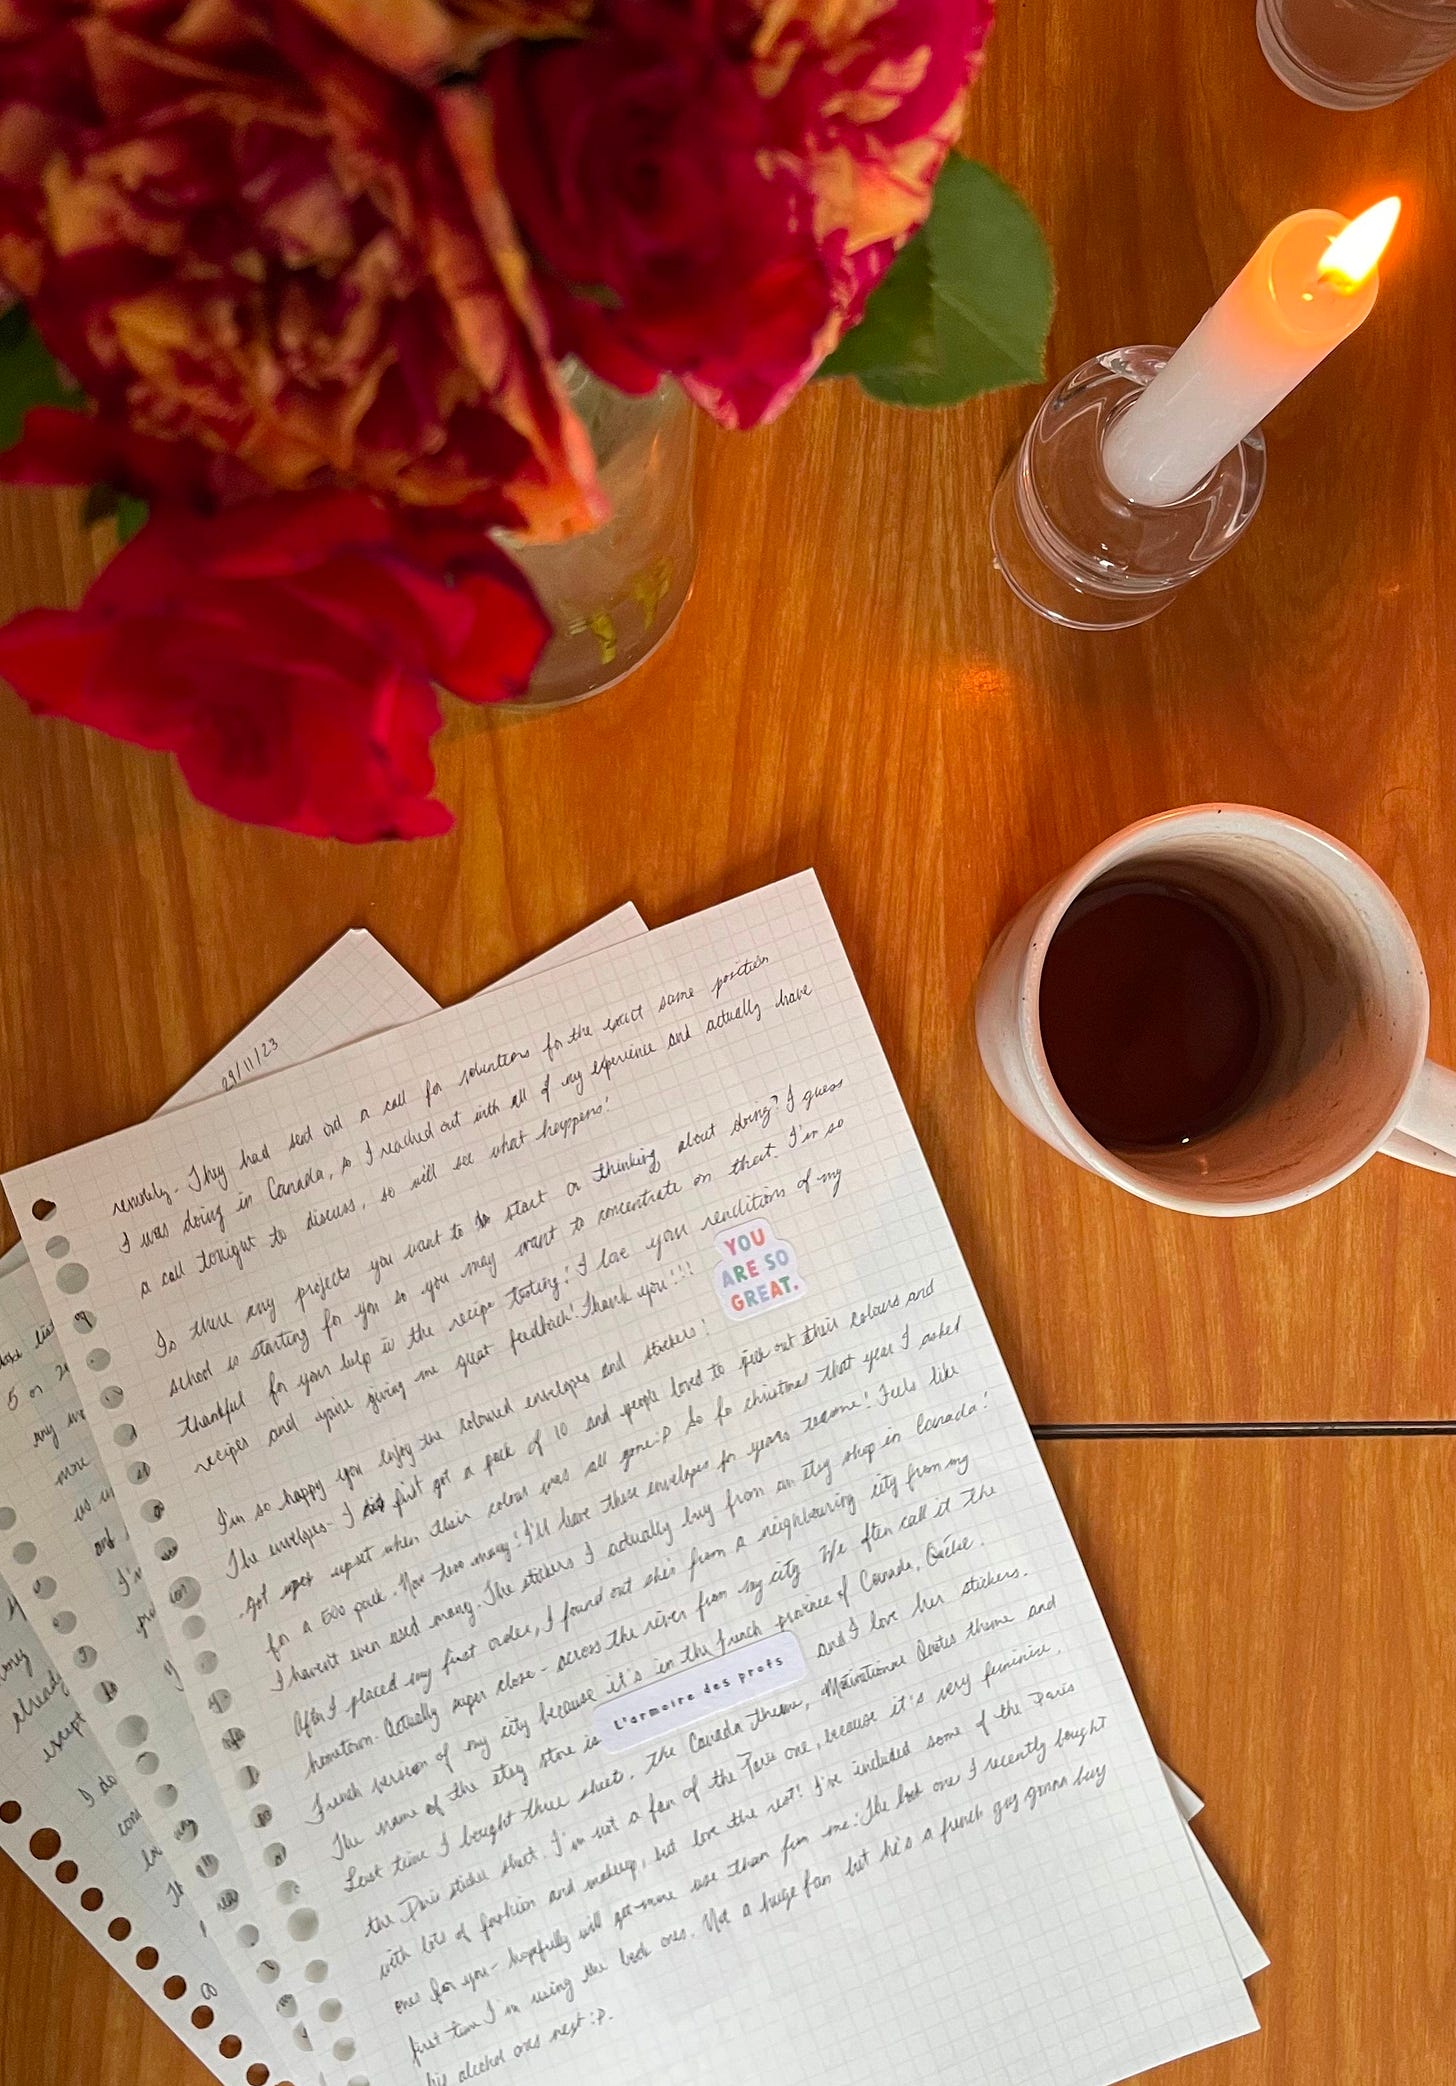 29/11/23
remotely. They had sent out a call for volunteers for the exact same position
I was doing in Canada, so I reached out with all of my experience and actually have
a call tonight to discuss, so will see what happens!
Is there any projects you want to start or thinking about doing? I guess
school is starting for you so you may want to concentrate on that. I'm so
thankful for your help in the recipe testing! I love your renditions of my
recipes and you're giving me great feedback! Thank you!!!
YOU
ARE SO
GREAT.
I'm so happy you enjoy the coloured envelopes and stickers!
The envelopes - I first got a pack of 10 and people loved to pick out their colours and
got upset when their colour was all gone :P So for christmas that year I asked
for a 500 pack. Now too many! I'll have these envelopes for years to come! Feels like
I haven't even used many. The stickers I actually buy from an etsy shop in Canada!
After I placed my first order, I found out she's from a neighbouring city from my
hometown. Actually super close - across the river from my city. We often call it the
French version of my city because it's in the french province of Canada, Québec.
The name of the etsy store is L'armoire des profs and I love her stickers.
Last time I bought three sheets, the Canada theme, Motivational Quotes theme and
the Paris sticker sheet. I'm not a fan of the Paris one, because it's very feminine,
with lots of fashion and makeup, but love the rest! I've included some of the Paris
ones for you - hopefully will get more use than from me! The book one I recently bought
first time I'm using the book ones. Not a huge fan but he's a french guy gonna buy
his alcohol ones next :P.
5 or
any
more
us
and
I'm
I do
already
except